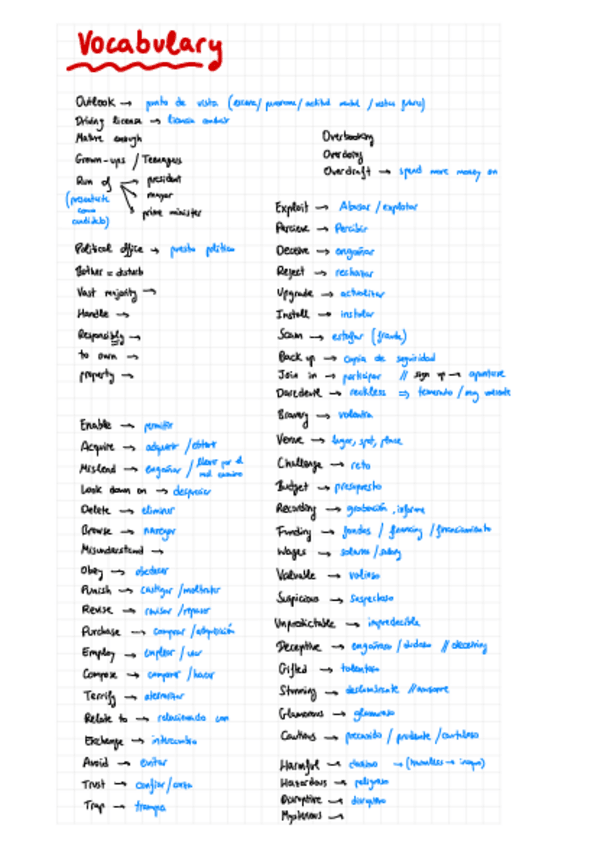 Vocabulary
Outlook → punto de vista (escena/panorama/actitud mental/vistas futuro)
Driving license → licencia conducir
Mature enough
Grown-ups / Teenagers
Run of → president
mayor
prime minister
(presentarte como candidato)
Political office → puesto político
Bother = disturb
Vast majority →
Handle →
Responsibly →
to own →
property →
Enable → permitir
Acquire → adquirir / obtener
Mislead → engañar / llevar por el mal camino
Look down on → despreciar
Delete → eliminar
Browse → navegar
Misunderstand →
Obey → obedecer
Punish → castigar / maltratar
Revise → revisar / repasar
Purchase → comprar / adquisición
Employ → emplear / usar
Compose → componer / hacer
Terrify → aterrorizar
Relate to → relacionado con
Exchange → intercambio
Avoid → evitar
Trust → confiar /
Trap → trampa
Overbooking
Overdoing
Overdraft → spend more money on
Exploit → Abusar / explotar
Percieve → Percibir
Deceive → engañar
Reject → rechazar
Upgrade → actualizar
Install → instalar
Scam → estafar (fraude)
Back up → copia de seguridad
Join in → participar // sign up → apuntarse
Daredevil → reckless ⇒ temerario / muy valiente
Bravery → valentía
Venue → lugar, spot, place
Challenge → reto
Budget → presupuesto
Recording → grabación, informe
Funding → fondos / financing / financiamiento
Wages → salario / salary
Valuable → valioso
Suspicious → sospechoso
Unpredictable → impredecible
Deceptive → engañoso / dudoso // deceiving
Gifted → talentoso
Stunning → deslumbrante // awesome
Glamorous → glamuroso
Cautious → precavido / prudente / cauteloso
Harmful → dañino → (harmless →)
Hazardous → peligroso
Disruptive → disruptivo
Mysterious →